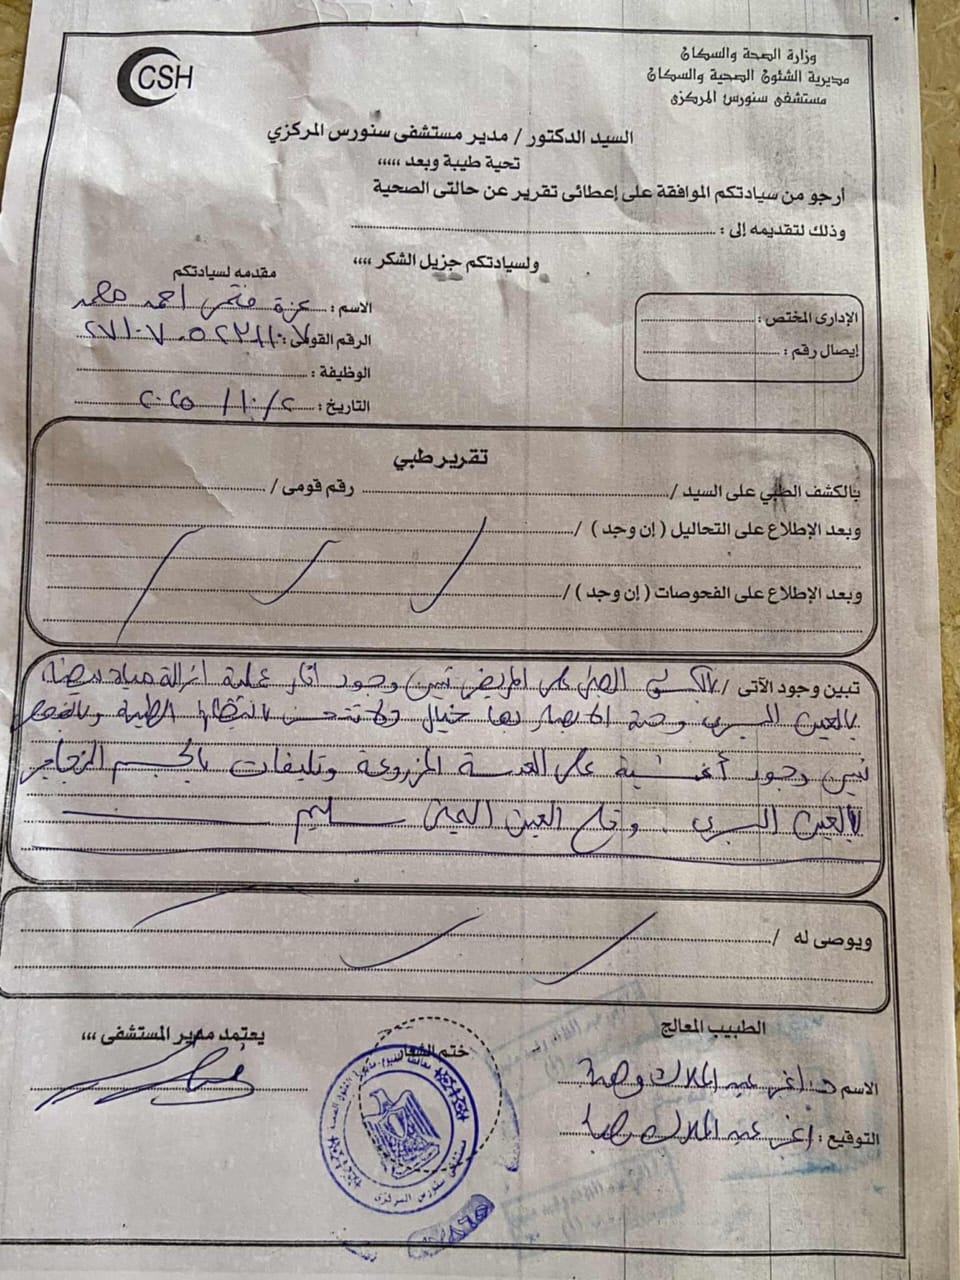 CSH
وزارة الصحة والسكان
مديرية الشئون الصحية والسكان
مستشفى سنورس المركزى
السيد الدكتور / مدير مستشفى سنورس المركزي
تحية طيبة وبعد ,,,,,
أرجو من سيادتكم الموافقة على إعطائى تقرير عن حالتى الصحية
وذلك لتقديمه إلى :
ولسيادتكم جزيل الشكر ,,,,
مقدمه لسيادتكم
الاسم : عزة فتحى احمد محمد
الرقم القومى :
الوظيفة :
التاريخ : ٢ / ١٠ / ٢٠٢٥
الإدارى المختص :
إيصال رقم :
تقرير طبي
بالكشف الطبي على السيد / رقم قومى /
وبعد الإطلاع على التحاليل ( إن وجد ) /
وبعد الإطلاع على الفحوصات ( إن وجد ) /
تبين وجود الآتى / بالكشف الطبى على المريض تبين وجود اثار عملية ازالة مياه بيضاء
بالعين اليسرى وحدة الابصار بها خيال ولا تتحسن بالنظارة الطبية وبالفحص
تبين وجود أغشية على العدسة المزروعة وتليفات بالجسم الزجاجى
بالعين اليسرى . وقاع العين اليمنى سليم
ويوصى له /
الطبيب المعالج
الاسم د. عبد الملاك وهبة
التوقيع : عبد الملاك
ختم الشعار
مستشفى سنورس المركزى
يعتمد مدير المستشفى ,,,